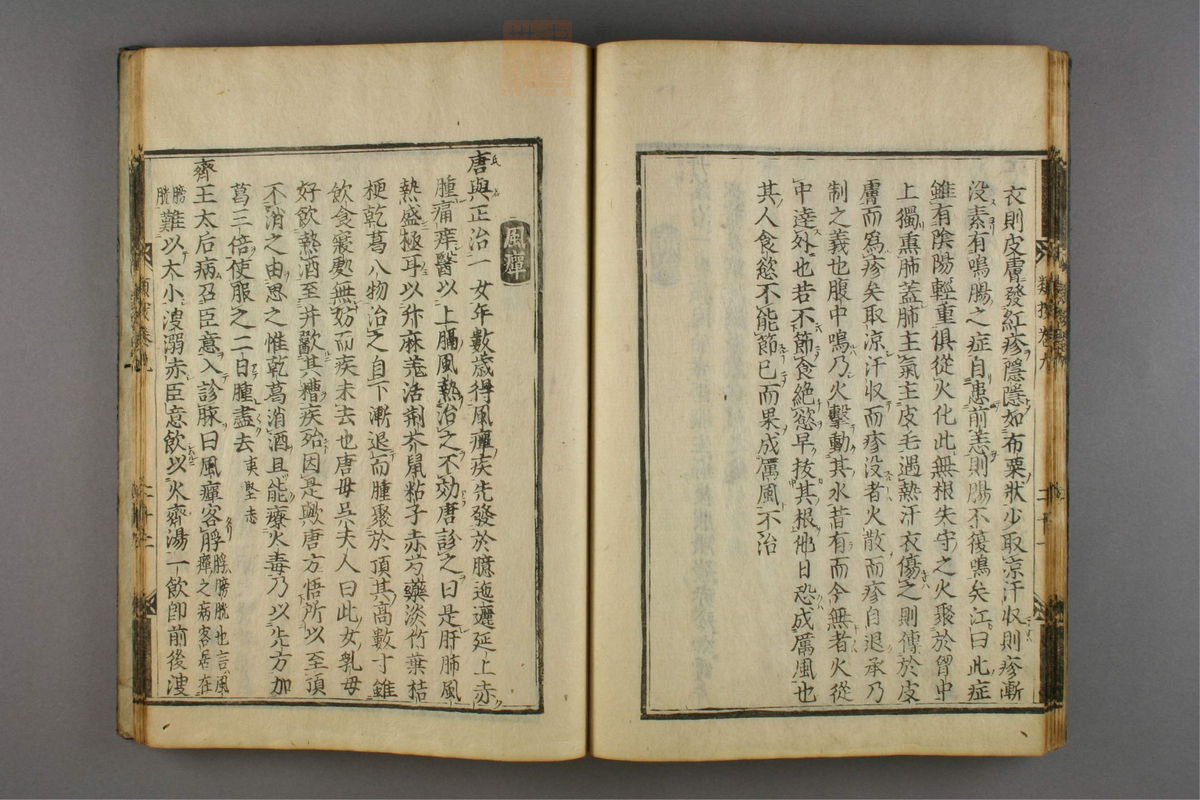 衣則皮膚發紅疹隱隱如布粟狀少取凉汗收則疹漸
没素有鳴腸之症自患前恙則腸不復鳴矣江曰此症
雖有陰陽輕重俱從火化此無根失守之火聚於胷中
上獨熏肺蓋肺主氣主皮毛遇熱汗衣傷之則傳於皮
膚而爲疹矣取凉汗收而疹没者火散而疹自退承乃
制之義也腹中鳴乃火擊動其水昔有而今無者火從
中達外也若不節食絶慾早拔其根他日恐成厲風也
其人食慾不能節已而果成厲風不治
風癉
唐與正治一女年數歳得風癉疾先發於臆迤邐延上赤
腫痛痒醫以上膈風熱治之不効唐診之曰是肝肺風
熱盛極耳以升麻羗活荆芥鼠粘子赤芍藥淡竹葉桔
梗乾葛八物治之自下漸退而腫聚於頂其高數寸雖
飲食寢處無妨而疾未去也唐母吴夫人曰此女乳母
好飲熱酒至并歠其糟疾殆因是歟唐方悟所以至頂
不消之由思之惟乾葛消酒且能療火毒乃以先方加
葛三倍使服之二日腫盡去夷堅志
齊王太后病召臣意入診脉曰風癉客脬脬膀胱也言風癉之病客居在
膀胱難以大小溲溺赤臣意飲以火齊湯一飲卽前後溲
類按卷九
二十一